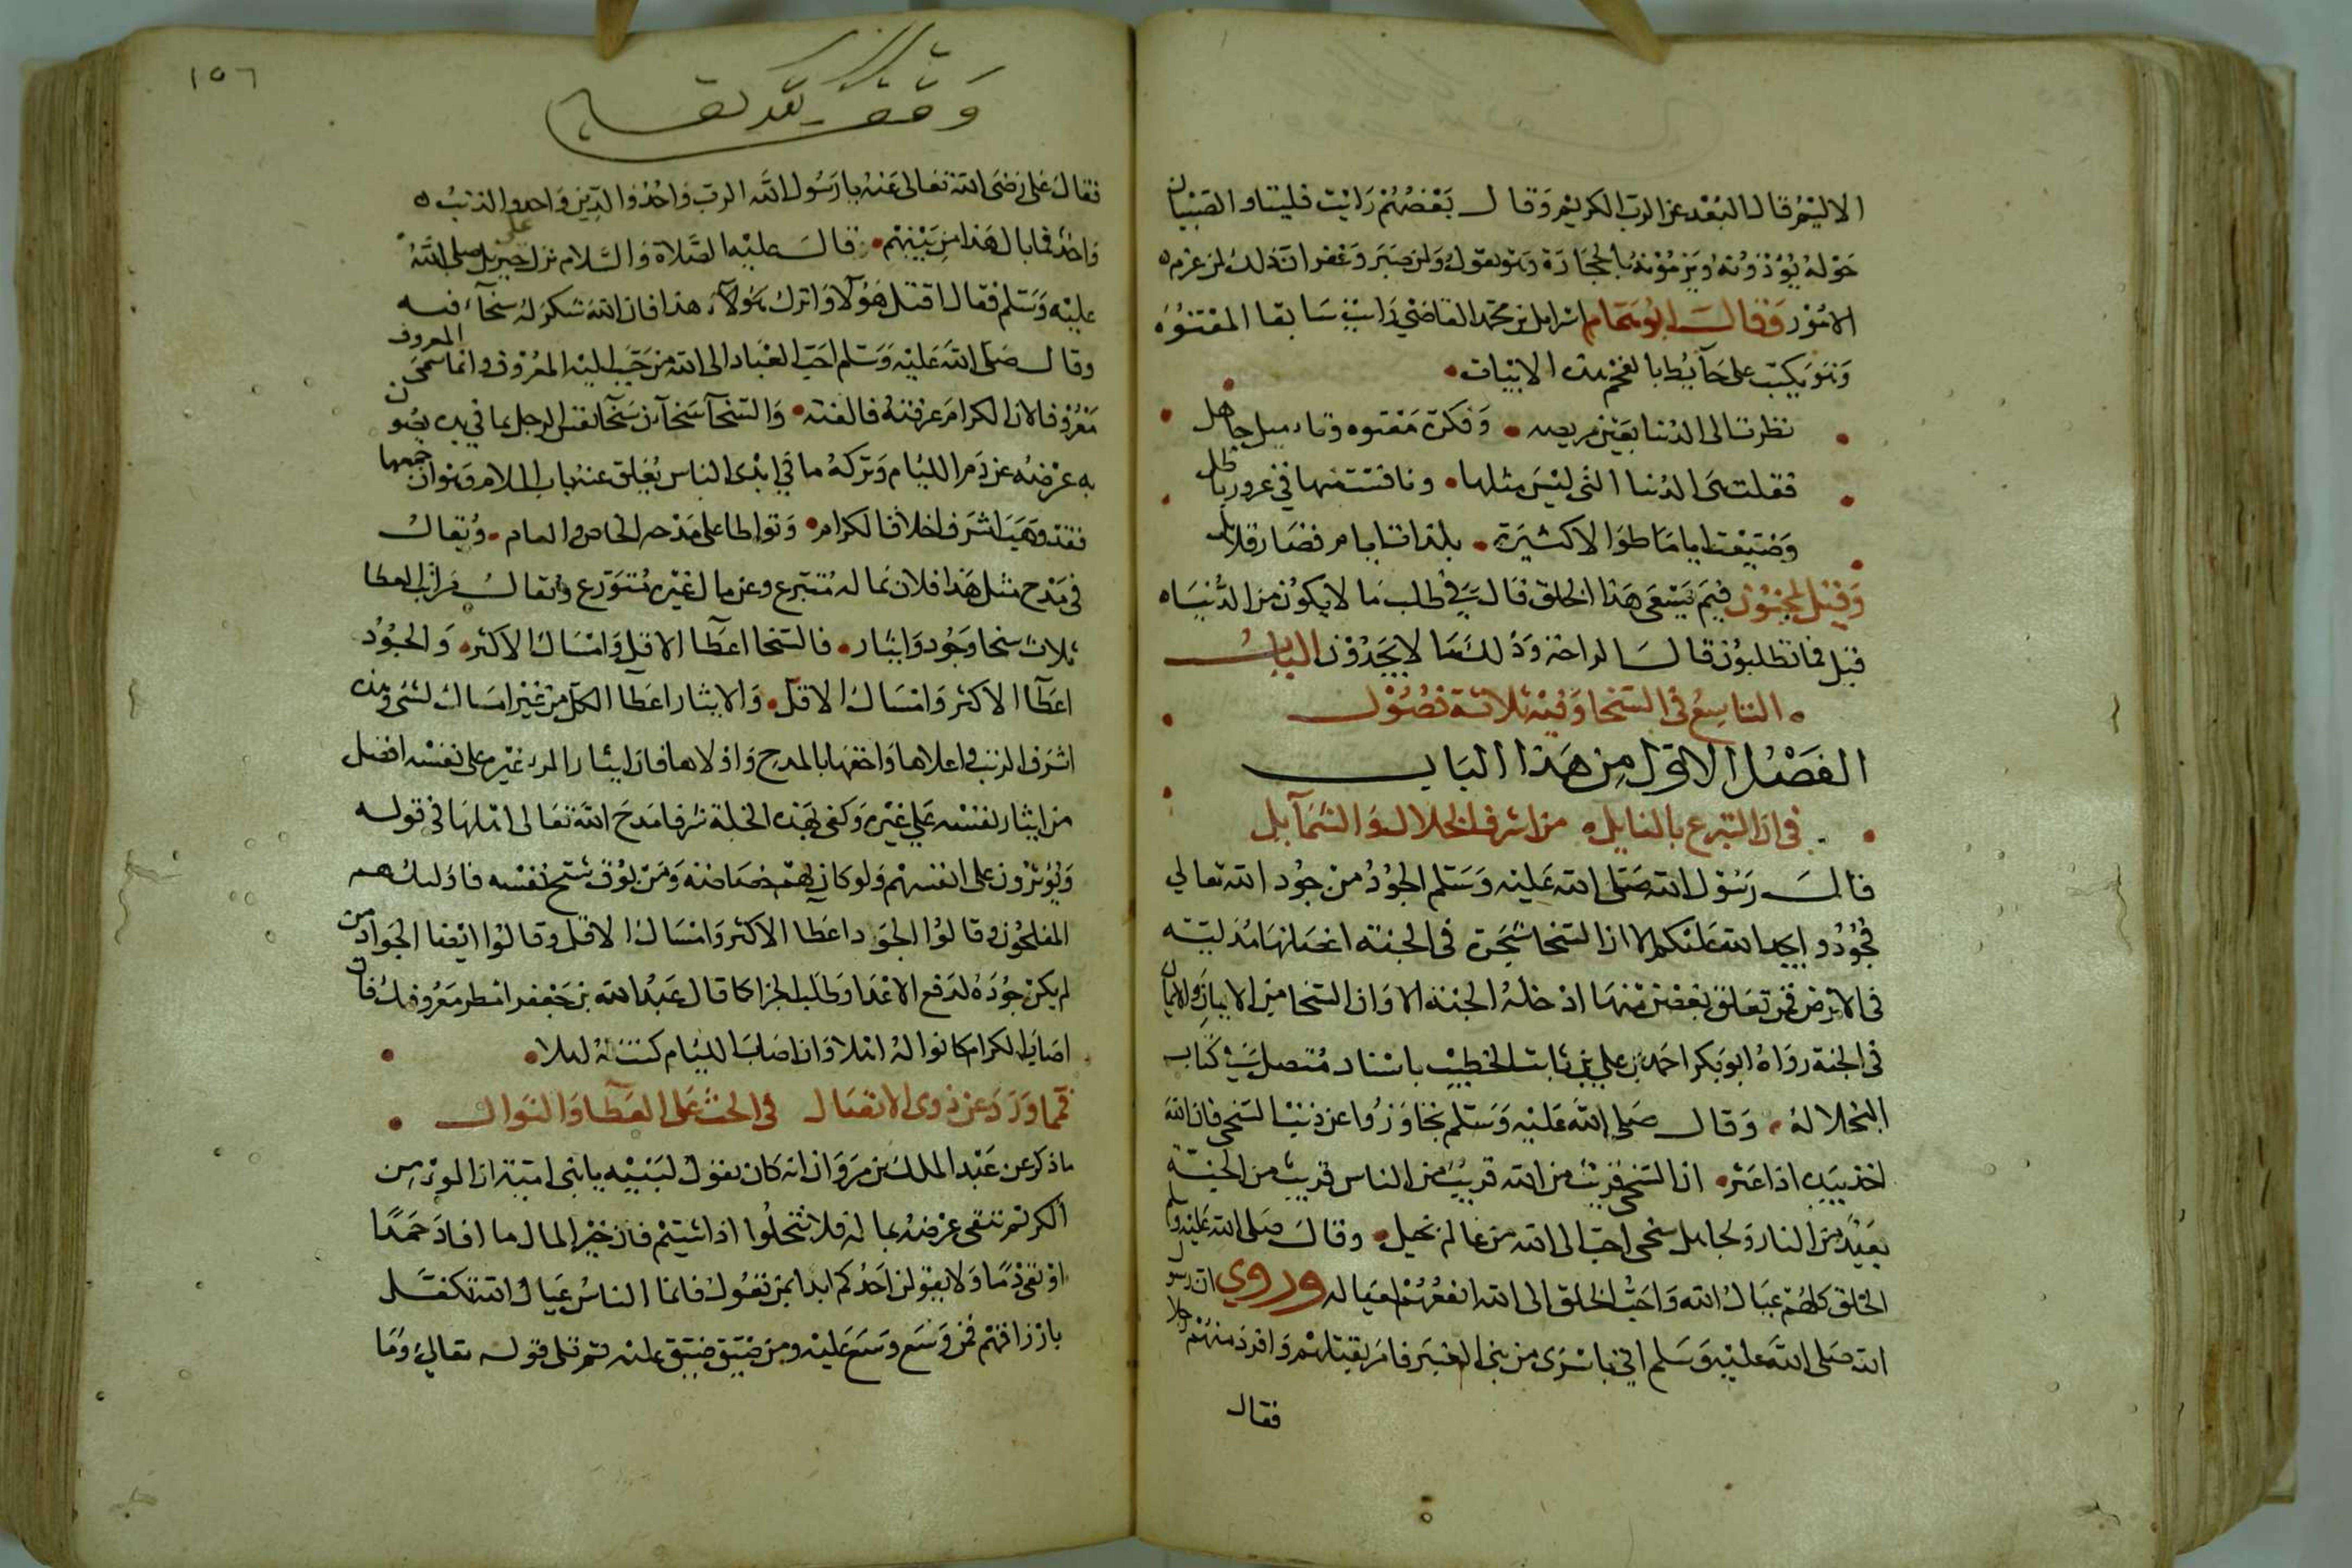 الاليم قال البعد عن الرب الكريم وقال بعضهم رايت فليتا والصبيان
حوله يؤذونه ويرمونه بالحجارة وهو يقول ولمن صبر وغفر ان ذلك لمن عزم
الامور وقال ابو همام اسرايل بن محمد القاضي رايت سابقا المعتوه
وهو يكتب على حايط بالفحم هذه الابيات
نظرت الى الدنيا بعين مريضه وفكرة معتوه وتاميل جاهل
فقلت هي الدنيا التي ليس مثلها ونافست منها في غرور باطل
وضيعت اياما طوالا كثيرة بلذات ايام قصار قلايل
وقيل لمجنون فيم يسعى هذا الخلق قال في طلب ما لا يكون من الدنيا
قيل فما تطلبون قال الراحة وذلك ما لا يجدون الباب
التاسع في السخا وفيه ثلاثة فصول
الفصل الاول من هذا الباب
في ان التبرع بالنايل من اشرف الخلال والشمآيل
قال رسول الله صلى الله عليه وسلم الجود من جود الله تعالي
فجودوا يجد الله عليكم الا ان السخا شجرة في الجنة اغصانها مدلية
في الارض فمن تعلق بغصن منها ادخله الجنة الا وان السخا من الايمان والايمان
في الجنة رواه ابو بكر احمد بن علي بن ثابت الخطيب باسناد متصل في كتاب
البخلا له وقال صلى الله عليه وسلم تجاوزوا عن ذنب السخي فان الله
اخذ بيده اذا عثر ان السخي قريب من الله قريب من الناس قريب من الجنة
بعيد من النار ولجاهل سخى احب الى الله من عالم بخيل وقال صلى الله عليه وسلم
الخلق كلهم عيال الله واحب الخلق الى الله انفعهم لعياله وروي ان رسول
الله صلى الله عليه وسلم اتي باسرى من بني العنبر فامر بقتلهم وافرد منهم رجلا
فقال
١٥٦
فقال على رضى الله تعالى عنه يا رسول الله الرب واحد والدين واحد والذنب
واحد فما بال هذا من بينهم قال عليه الصلاة والسلام نزل على جبريل صلى الله
عليه وسلم فقال اقتل هولا واترك هذا فان الله شكر له سخآء فيه
وقال صلى الله عليه وسلم احب العباد الى الله من حبب اليه المعروف وانما سمى المعروف
معروفا لان الكرام عرفته فالفته والسخآ سخآن سخا نفس الرجل بما في يده يصون
به عرضه عن ذم الليام وتركه ما في ايدى الناس يغلق عنه باب الملام وهو ان جمعهما
فقد وهب اشرف اخلاق الكرام وتواطا على مدحه الخاص والعام ويقال
في مدح مثل هذا فلان بماله متبرع وعن مال غيره متورع ويقال مراتب العطا
ثلاث سخا وجود وايثار فالسخا اعطآ الاقل وامساك الاكثر والجود
اعطآ الاكثر وامساك الاقل والايثار اعطا الكل من غير امساك لشى وهذه
اشرف الرتب واعلاها واحقها بالمدح واولاها فان ايثار المرء غيره على نفسه افضل
من ايثار نفسه على غيره وكفى بهذه الخلة شرفا مدح الله تعالى اهلها في قوله
ويؤثرون على انفسهم ولو كان بهم خصاصة ومن يوق شح نفسه فاوليك هم
المفلحون وقالوا الجود اعطا الاكثر وامساك الاقل وقالوا ايضا الجواد من
لم يكن جوده لدفع الاعدا وطلب الجزا كما قال عبد الله بن جعفر امطر معروفك فان
اصاب الكرام كانوا له اهلا وان اصاب الليام كنت له اهلا
فمما ورد عن ذوى الافضال في الحث على العطآ والنوال
ما ذكر عن عبد الملك بن مروان انه كان يقول لبنيه يا بنى امية ان المرء من
الكرم تتقى عرضه بماله فلا تبخلوا اذا شيتم فان خير المال ما افاد حمدا
او نفى ذما ولا يقولن احدكم ابدا بمن تعول فانما الناس عيال الله تكفل
بارزاقهم فمن وسع وسع عليه ومن ضيق ضيق عليه ثم تلى قوله تعالى وما